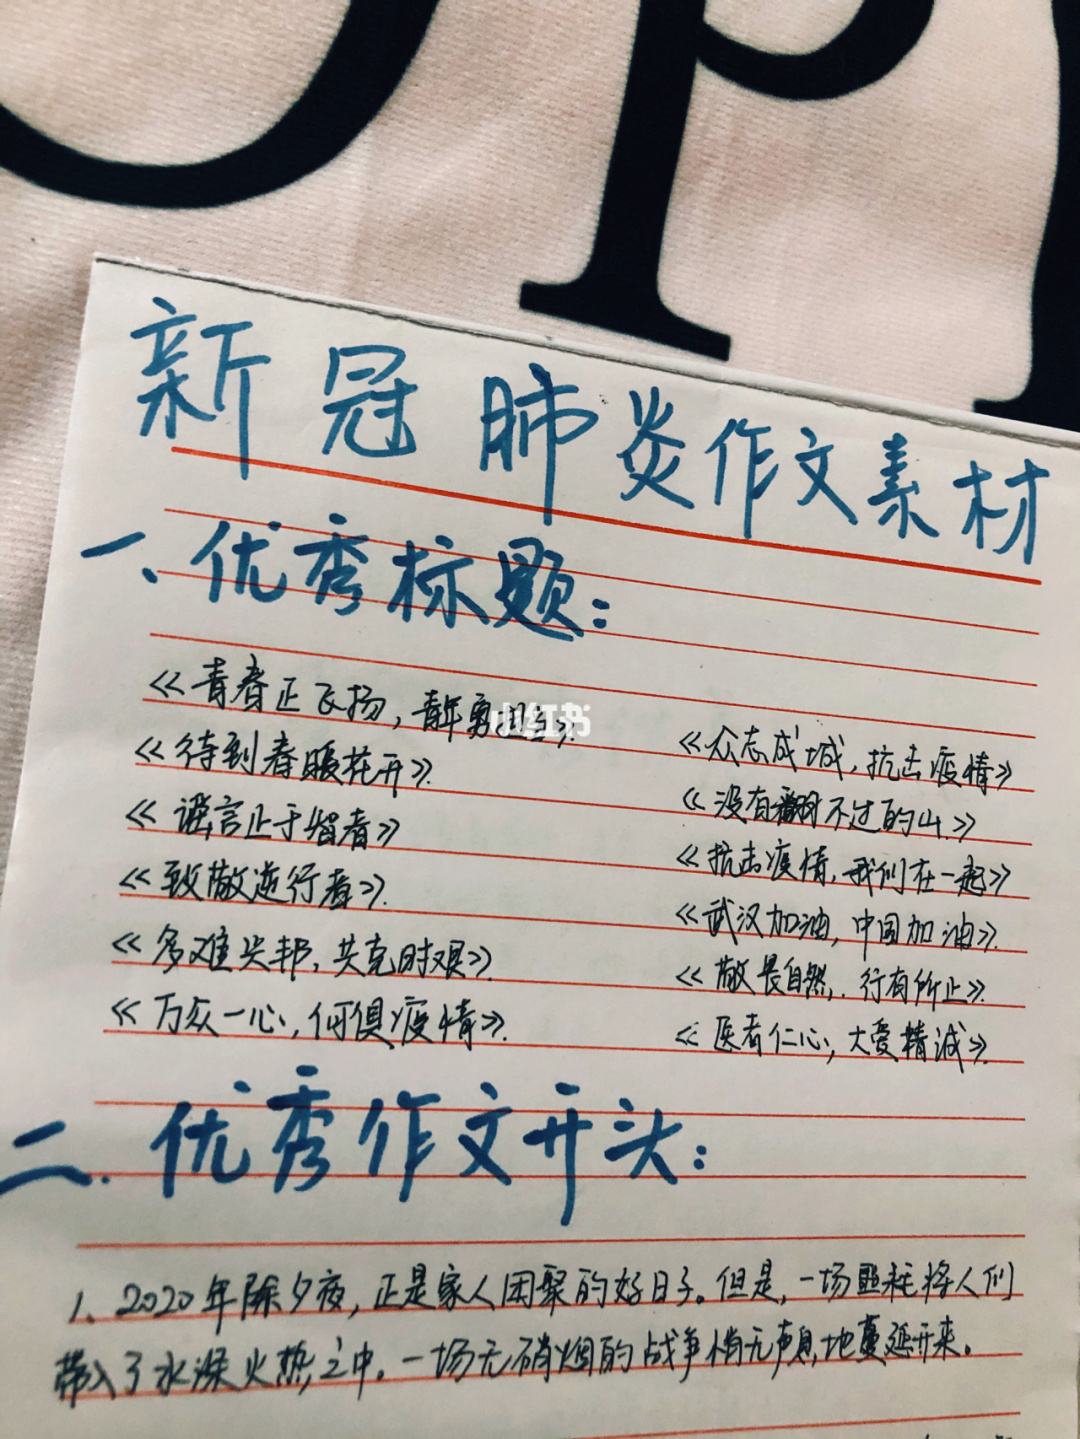 Op
新冠肺炎作文素材
一、优秀标题:
《青春正飞扬,青年勇担当》.
小红书
《待到春暖花开》.
《谣言止于智者》
《致敬逆行者》.
《多难兴邦,共克时艰》.
《万众一心,何惧疫情》.
《众志成城,抗击疫情》
《没有翻不过的山.》
《抗击疫情,我们在一起》
《武汉加油,中国加油》.
《敬畏自然,行有所止》.
《医者仁心,大爱精诚》.
二.优秀作文开头:
1、2020年除夕夜,正是家人团聚的好日子。但是,一场噩耗将人们
带入了水深火热之中。一场无硝烟的战争悄无声息地蔓延开来。